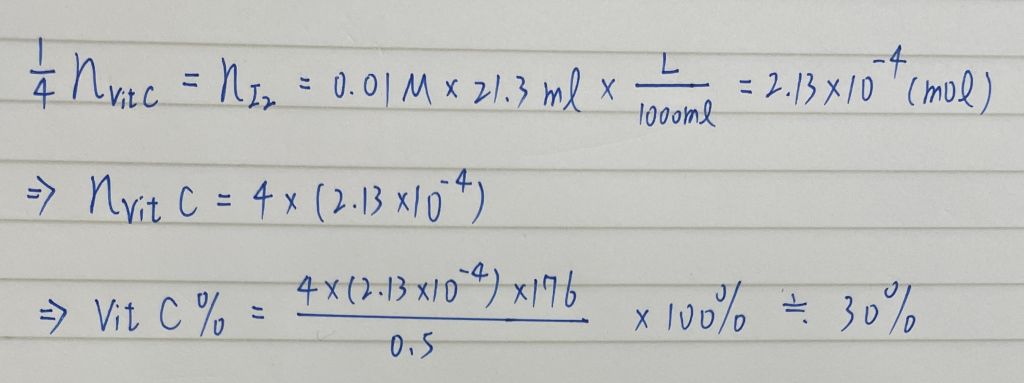 1/4 n Vit C = n I₂ = 0.01 M × 21.3 ml × L/1000ml = 2.13 × 10⁻⁴ (mol)
⇒ n Vit C = 4 × (2.13 × 10⁻⁴)
⇒ Vit C % = 4 × (2.13 × 10⁻⁴) × 176 / 0.5 × 100% ≒ 30%